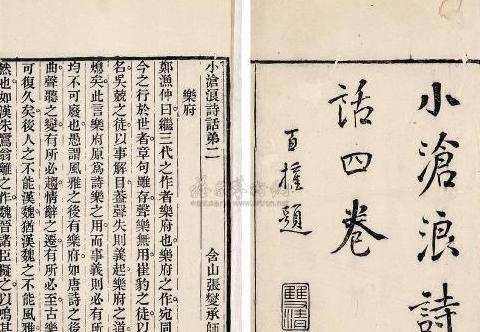 小滄浪詩
話四卷
題
雙清
小滄浪詩話第二 含山張燮承師
樂府
鄭漁仲曰繼三代之作者樂府也樂府之作宛同
今之行於世者章句雖存聲樂無用崔豹之徒以
名吳兢之徒以事解目蓋聲失則義起樂府之道
矣此言樂府原爲詩樂之用而事義則必有所
均不可廢也愚謂風雅之後有樂府如唐詩之後
曲聲聽之變有所必趨情辭之遷有所必至古樂
可復久矣後人之不能漢魏猶漢魏之不能風雅
然也如漢朱鷺翁離之作魏晉諸臣擬之以鳴其